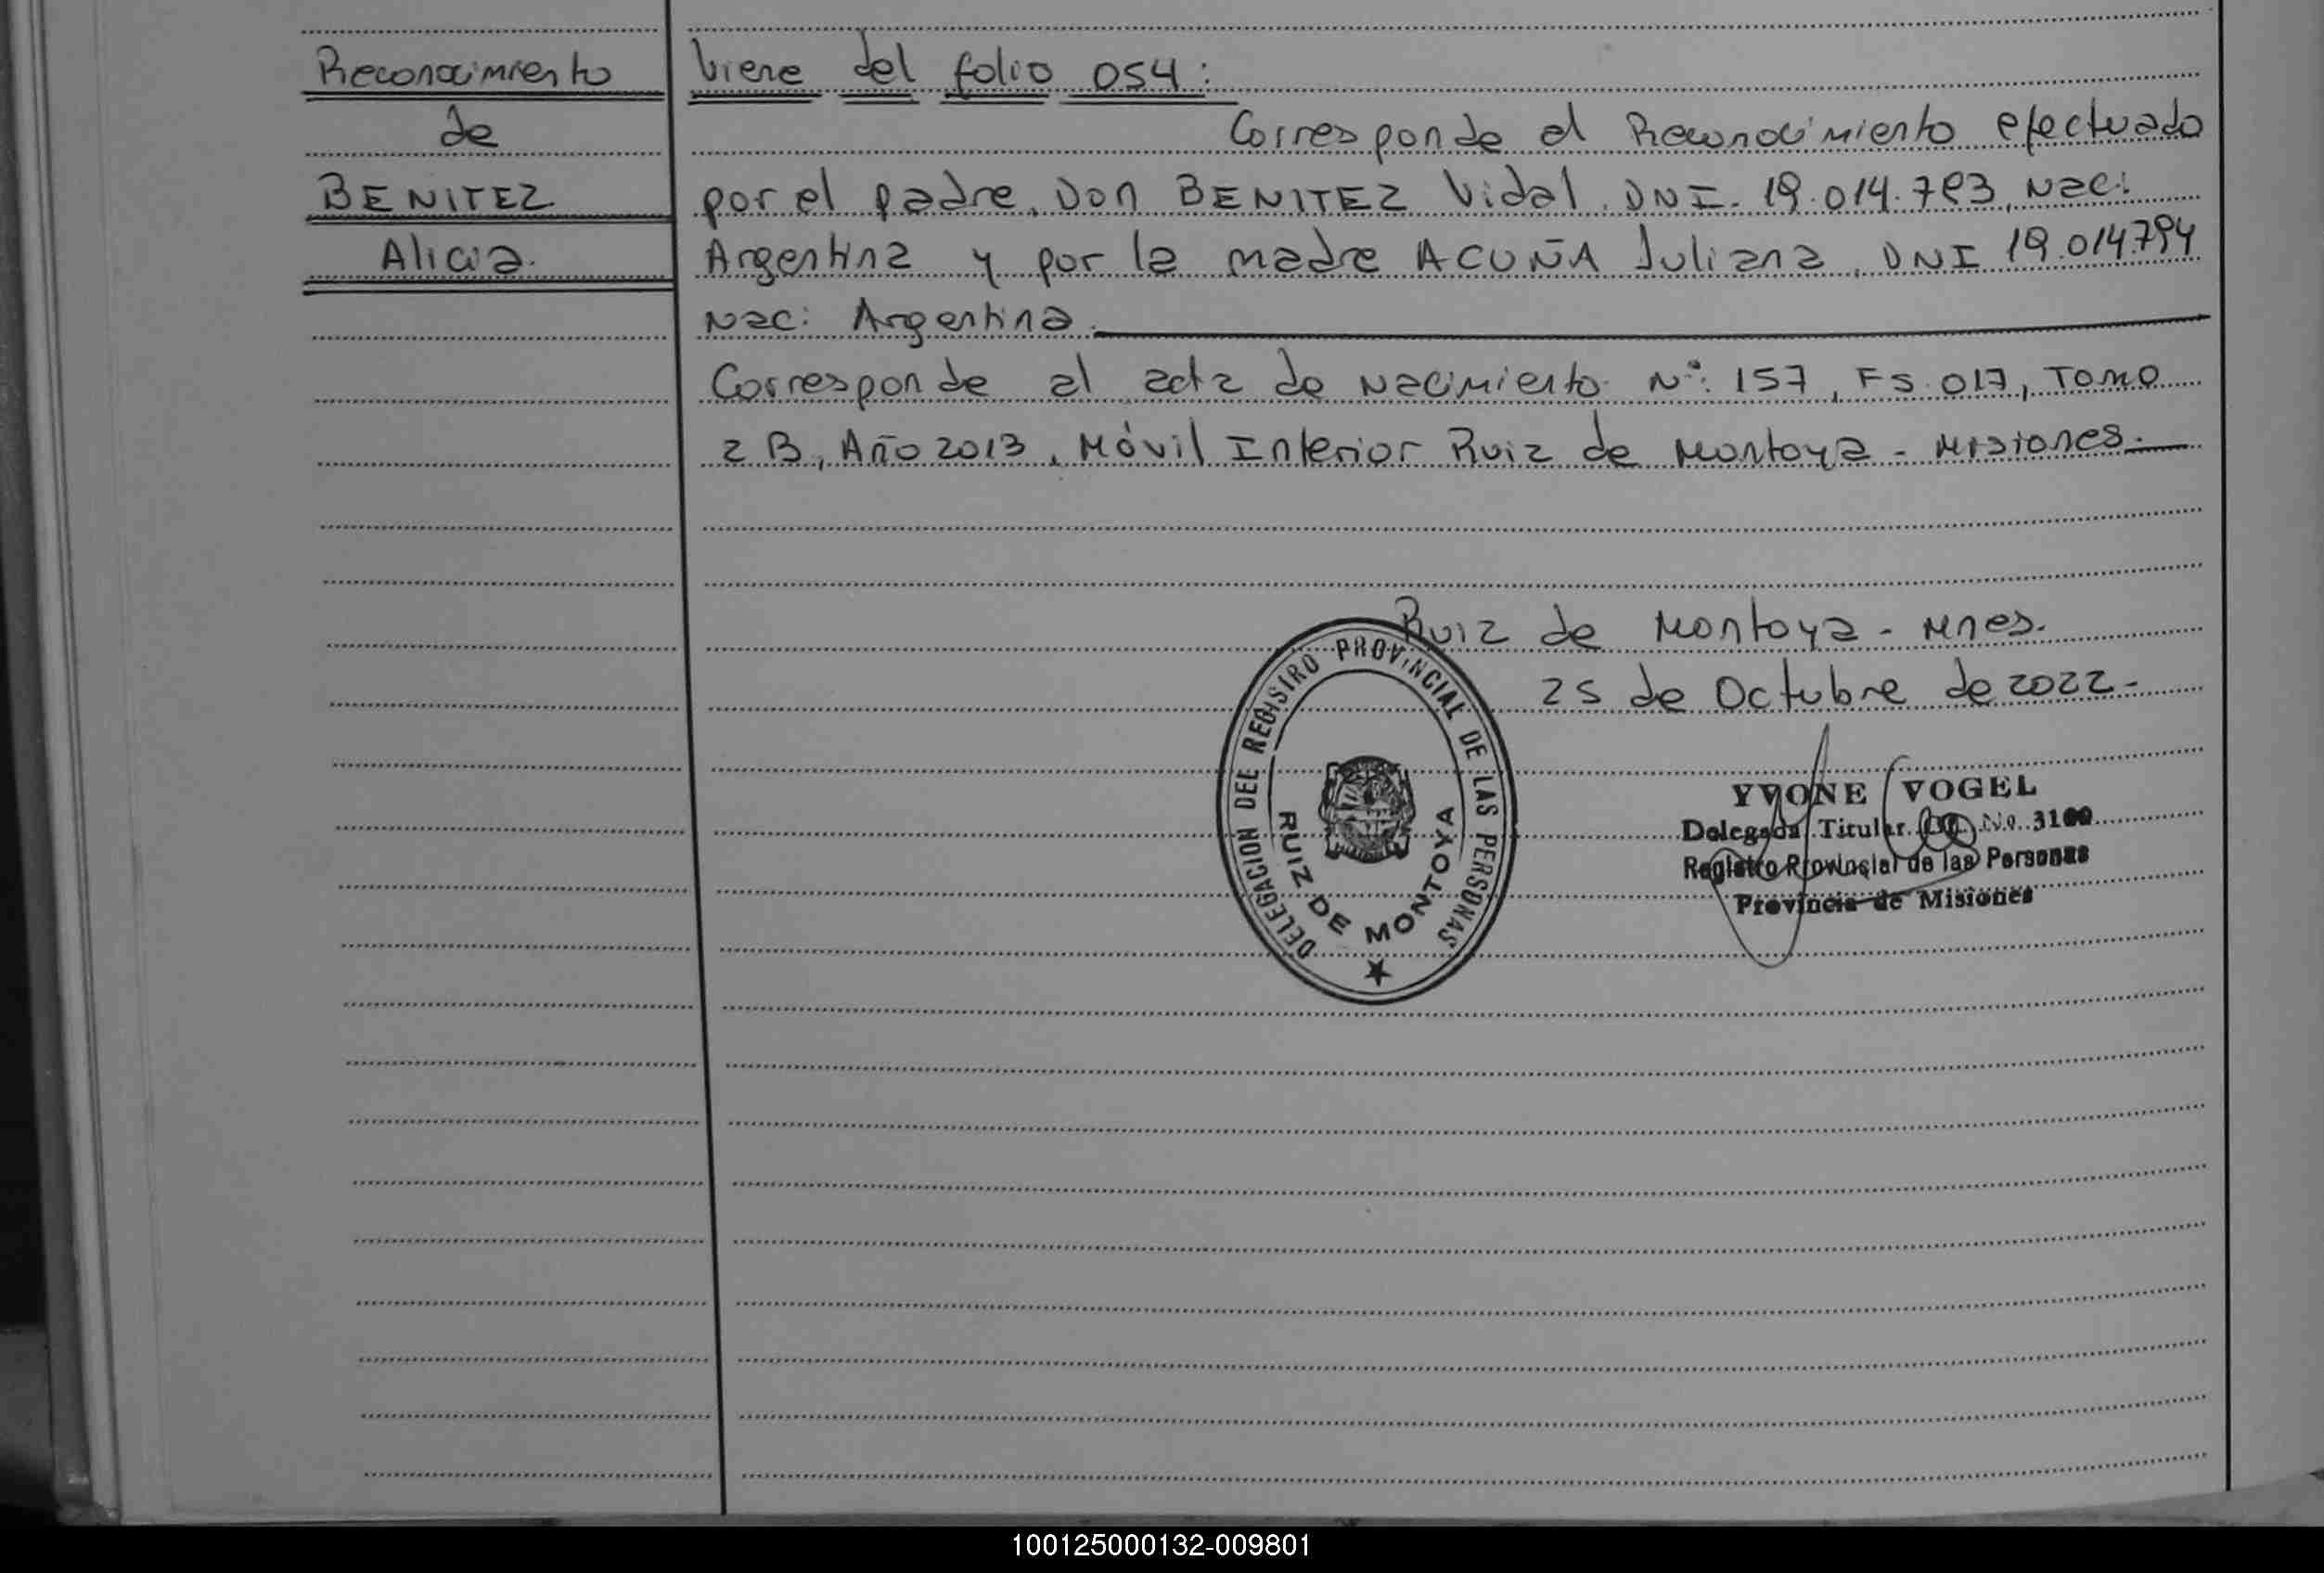 Reconocimiento
de
BENITEZ
Alicia.
Viene del folio 054:
Corresponde al Reconocimiento efectuado
por el padre, Don BENITEZ Vidal, DNI. 19.014.793, Nac:
Argentina y por la madre ACUÑA Juliana, DNI 19.014.794
Nac: Argentina.
Corresponde al acta de Nacimiento Nº: 157, FS. 017, Tomo
2 B, Año 2013, Móvil Interior Ruiz de Montoya - Misiones.
Ruiz de Montoya - Mnes.
25 de Octubre de 2022-
DELEGACION DEL REGISTRO PROVINCIAL DE LAS PERSONAS
RUIZ DE MONTOYA
YVONE VOGEL
Delegada Titular No. 3160
Registro Provincial de las Personas
Provincia de Misiones
100125000132-009801